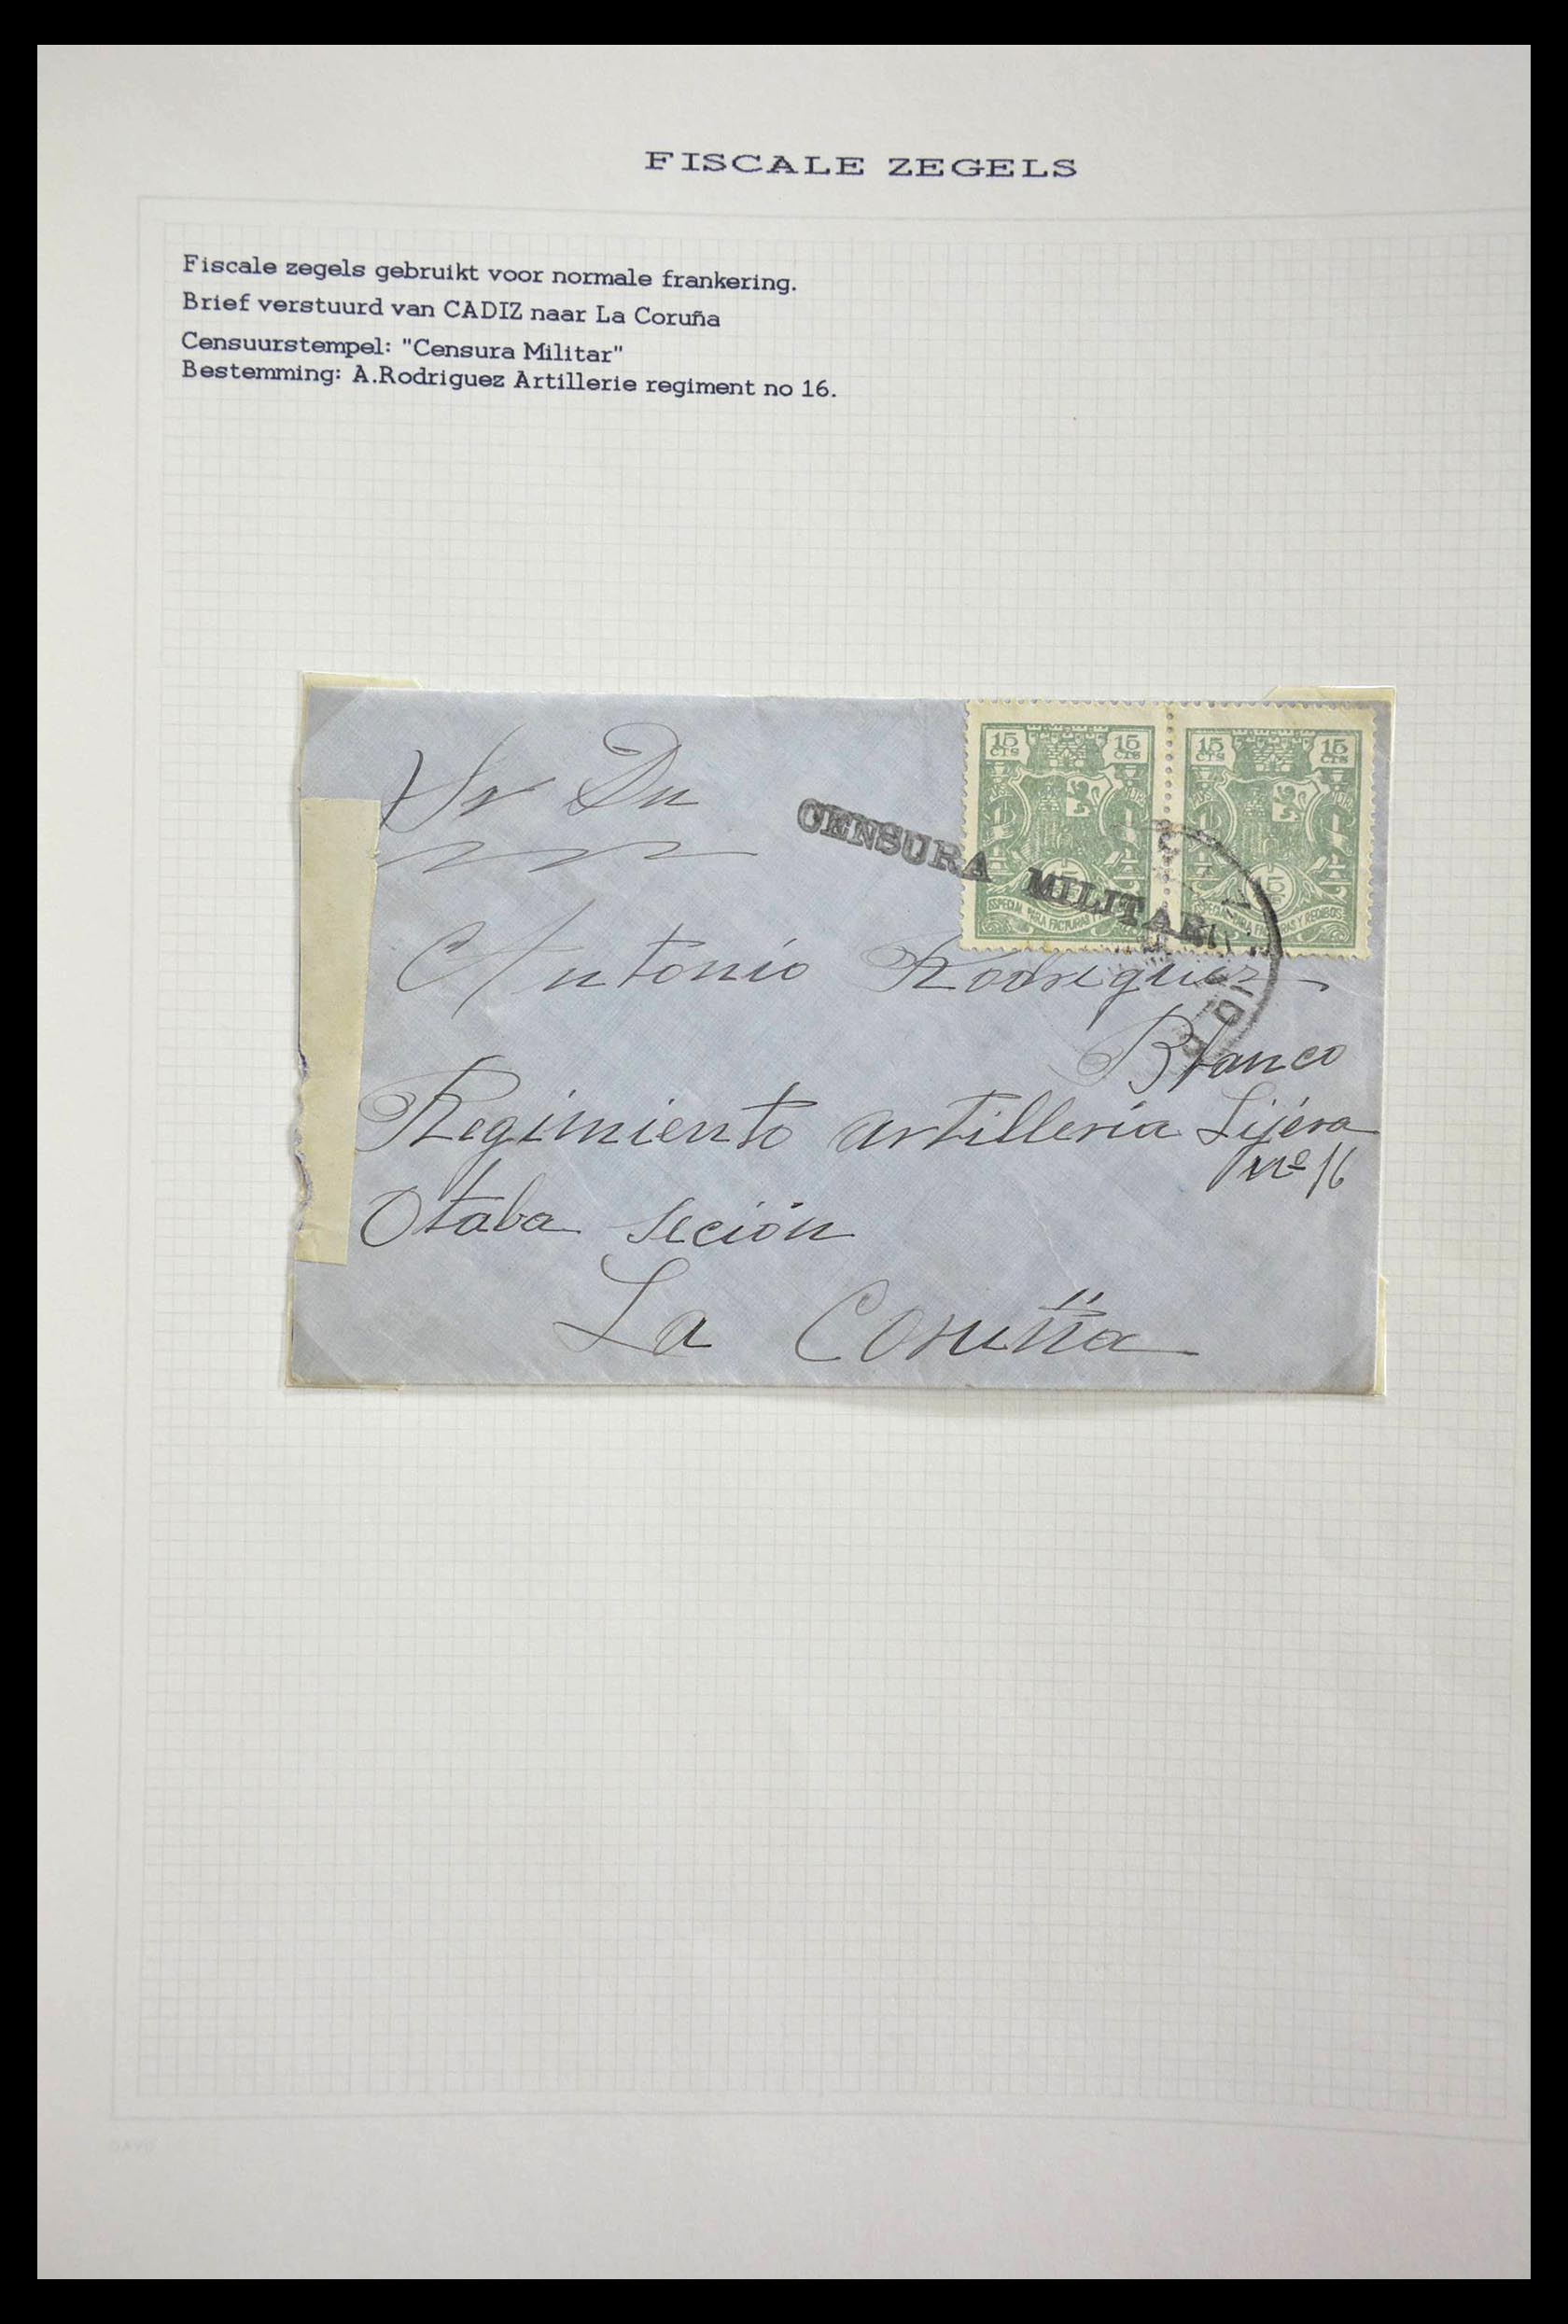 FISCALE ZEGELS
Fiscale zegels gebruikt voor normale frankering.
Brief verstuurd van CADIZ naar La Coruña
Censuurstempel: "Censura Militar"
Bestemming: A.Rodriguez Artillerie regiment no 16.
15 CTS 15 CTS
15 CTS 15 CTS
15
15
ESPECIAL PARA FACTURAS
ESPECIAL PARA FACTURAS Y RECIBOS
CENSURA MILITAR
Sr Dn
Antonio Rodriguez
Blanco
Regimiento artilleria Lijera
Nº 16
Otaba seción
La Coruña